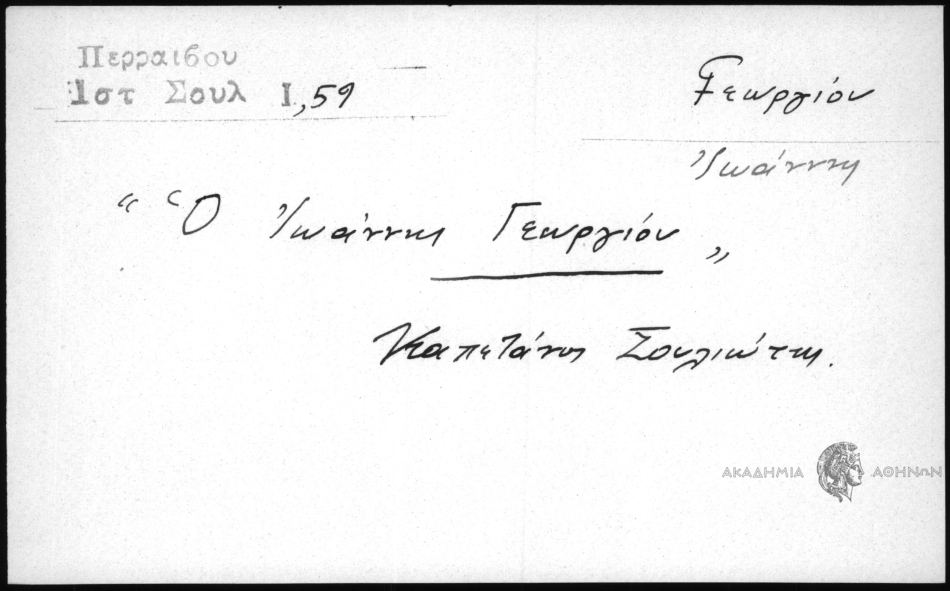 Περραιβου
Ιστ Σουλ Ι, 59
Γεωργίου
Ἰωάννης
“ Ὁ Ἰωάννης Γεωργίου „
Καπετάνος Σουλιώτης.
ΑΚΑΔΗΜΙΑ ΑΘΗΝΩΝ